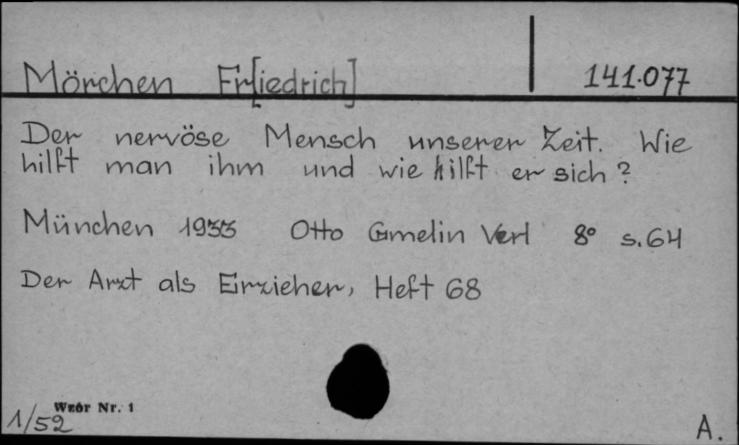 Mörchen Fr[iedrich] 141.077
Der nervöse Mensch unserer Zeit. Wie
hilft man ihm und wie hilft er sich?
München 1933 Otto Gmelin Verl 8° s.64
Der Arzt als Erzieher, Heft 68
Wzór Nr. 1
1/52
A.